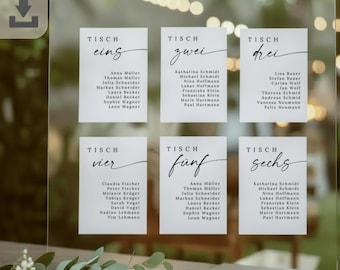 TISCH
eins
Anna Müller
Thomas Müller
Julia Schneider
Markus Schneider
Laura Becker
Daniel Becker
Sophie Wagner
Leon Wagner
TISCH
zwei
Katharina Schmidt
Michael Schmidt
Nina Hofmann
Lukas Hofmann
Franziska Klein
Sebastian Klein
Marie Hartmann
Paul Hartmann
TISCH
drei
Lisa Bauer
Stefan Bauer
Carina Wolf
Jan Wolf
Theresa Schmid
Andreas Schmid
Vanessa Neumann
Felix Neumann
TISCH
vier
Claudia Fischer
Peter Fischer
Melanie Krüger
Tobias Krüger
Sarah Vogel
David Vogel
Nadine Lehmann
Tim Lehmann
TISCH
fünf
Anna Müller
Thomas Müller
Julia Schneider
Markus Schneider
Laura Becker
Daniel Becker
Sophie Wagner
Leon Wagner
TISCH
sechs
Katharina Schmidt
Michael Schmidt
Nina Hofmann
Lukas Hofmann
Franziska Klein
Sebastian Klein
Marie Hartmann
Paul Hartmann